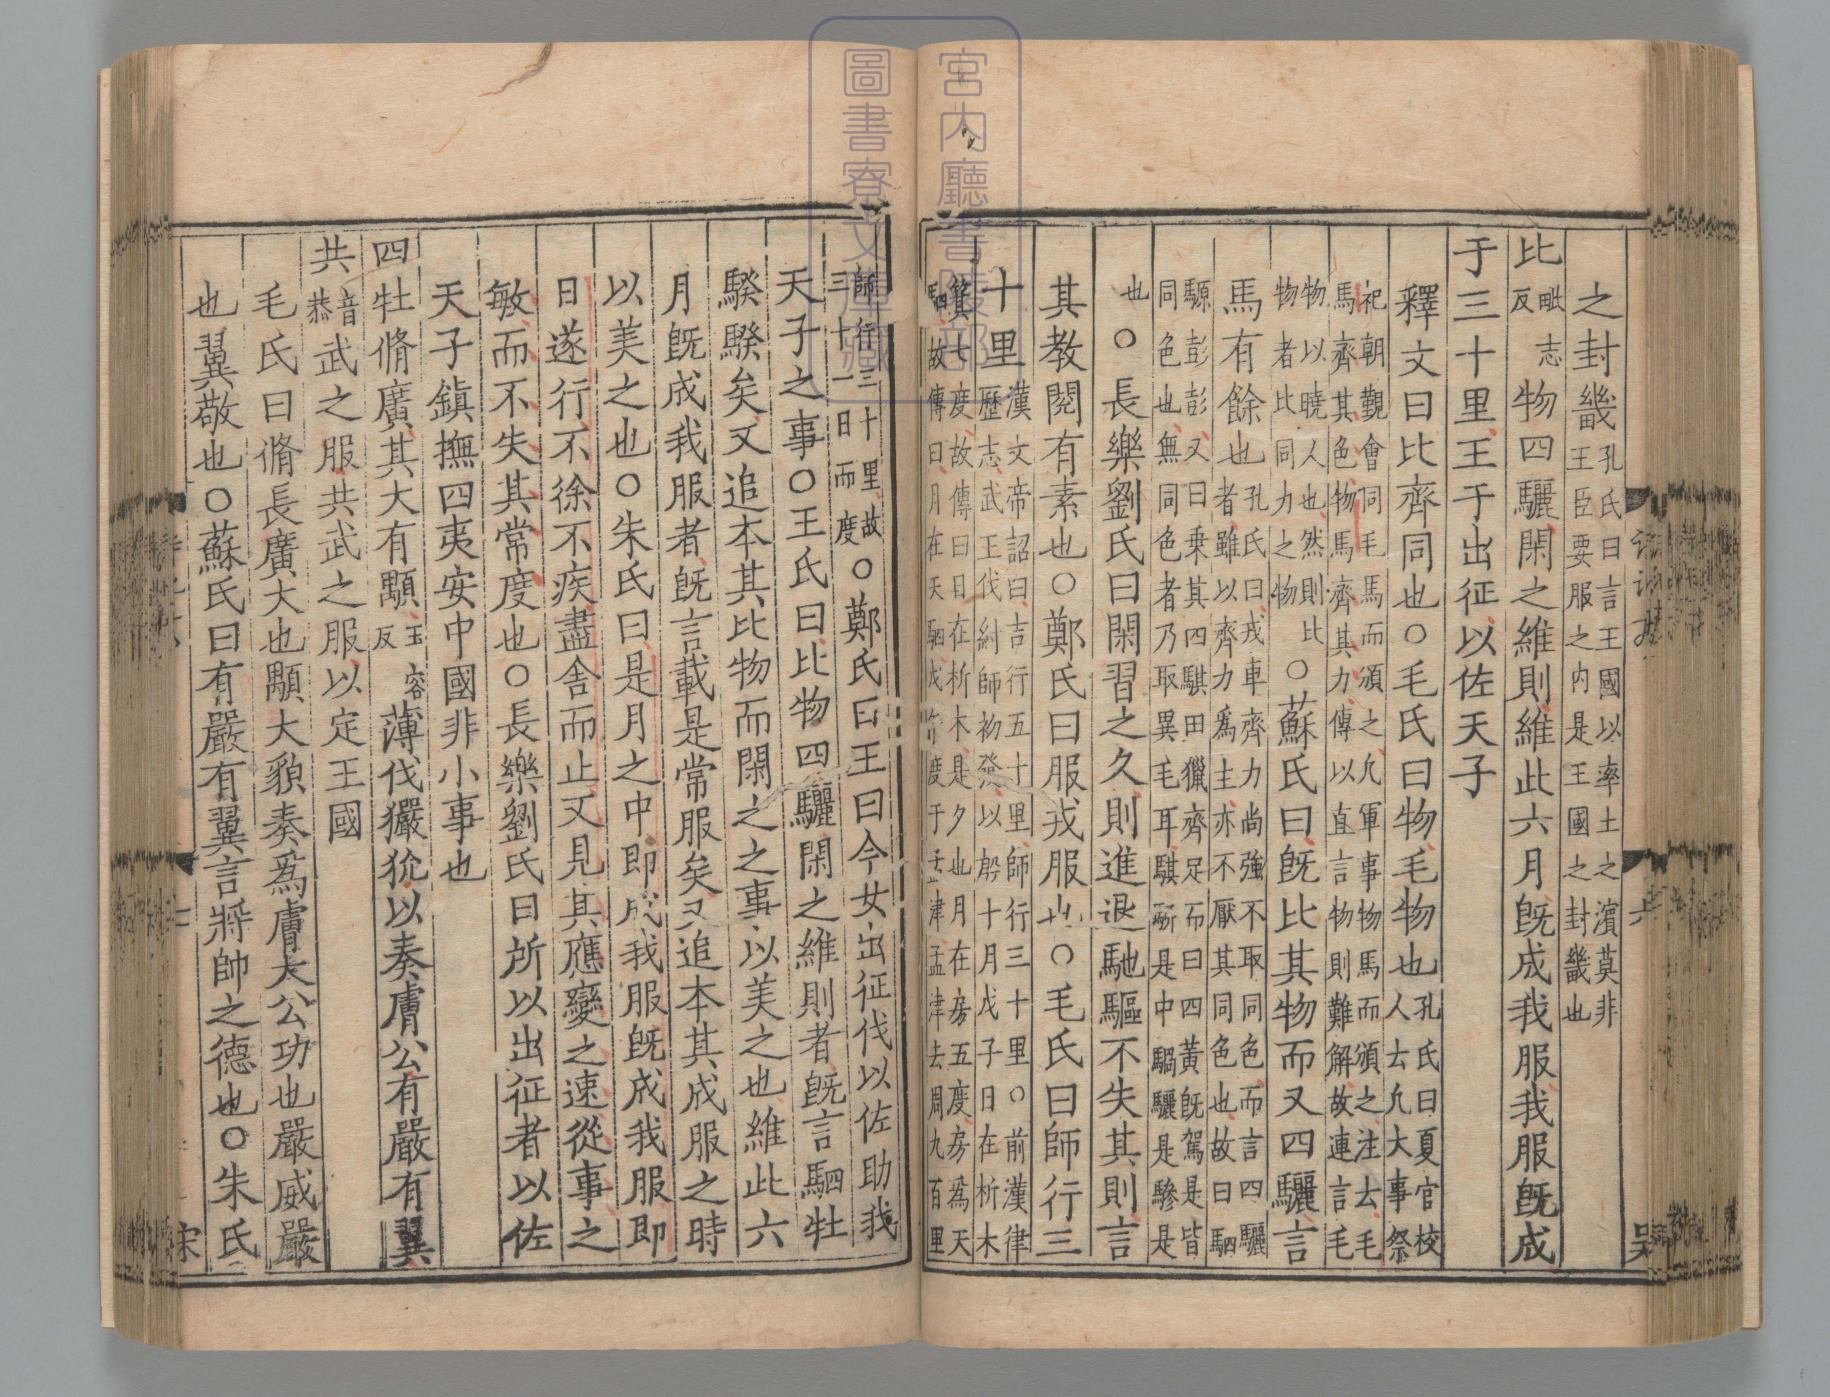 之封畿孔氏曰言王國以率土之濱莫非王臣要服之内是王國之封畿也
比毗志反物四驪閑之維則維此六月旣成我服我服旣成
于三十里王于出征以佐天子
釋文曰比齊同也○毛氏曰物毛物也孔氏曰夏官校人云凡大事祭
祀朝覲會同毛馬而頒之凡軍事物馬而頒之注云毛馬齊其色物馬齊其力傳以直言物則難解故連言毛
物以曉人也然則比物者比同力之物○蘇氏曰旣比其物而又四驪言
馬有餘也孔氏曰戎車齊力尚強不取同色而言四驪者雖以齊力爲主亦不厭其同色也故曰駟
騵彭彭又曰乗其四騏田獵齊足而曰四黄旣駕是皆同色也無同色者乃取異毛耳騏駵是中騧驪是驂是
也○長樂劉氏曰閑習之久則進退馳驅不失其則言
其教閱有素也○鄭氏曰服戎服也○毛氏曰師行三
十里漢文帝詔曰吉行五十里師行三十里○前漢律歷志武王伐紂師初發以殷十月戊子日在析木
箕七度故傳曰日在析木是夕也月在房五度房爲天駟故傳曰月在天駟戊午度于孟津孟津去周九百里
師行三十里故三十一日而度○鄭氏曰王曰今女出征伐以佐助我
天子之事○王氏曰比物四驪閑之維則者旣言駟牡
騤騤矣又追本其比物而閑之之事以美之也維此六
月旣成我服者旣言載是常服矣又追本其成服之時
以美之也○朱氏曰是月之中即成我服旣成我服即
日遂行不徐不疾盡舍而止又見其應變之速從事之
敏而不失其常度也○長樂劉氏曰所以出征者以佐
天子鎮撫四夷安中國非小事也
四牡脩廣其大有顒玉容反薄伐玁狁以奏膚公有嚴有翼
共音恭武之服共武之服以定王國
毛氏曰脩長廣大也顒大貌奏爲膚大公功也嚴威嚴
也翼敬也○蘇氏曰有嚴有翼言將帥之德也○朱氏
宮内廳書陵部
圖書寮文庫藏